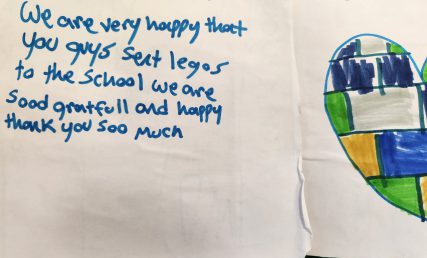 We are very happy that
you guys sent legos
to the school we are
sood gratfull and happy
thank you soo much